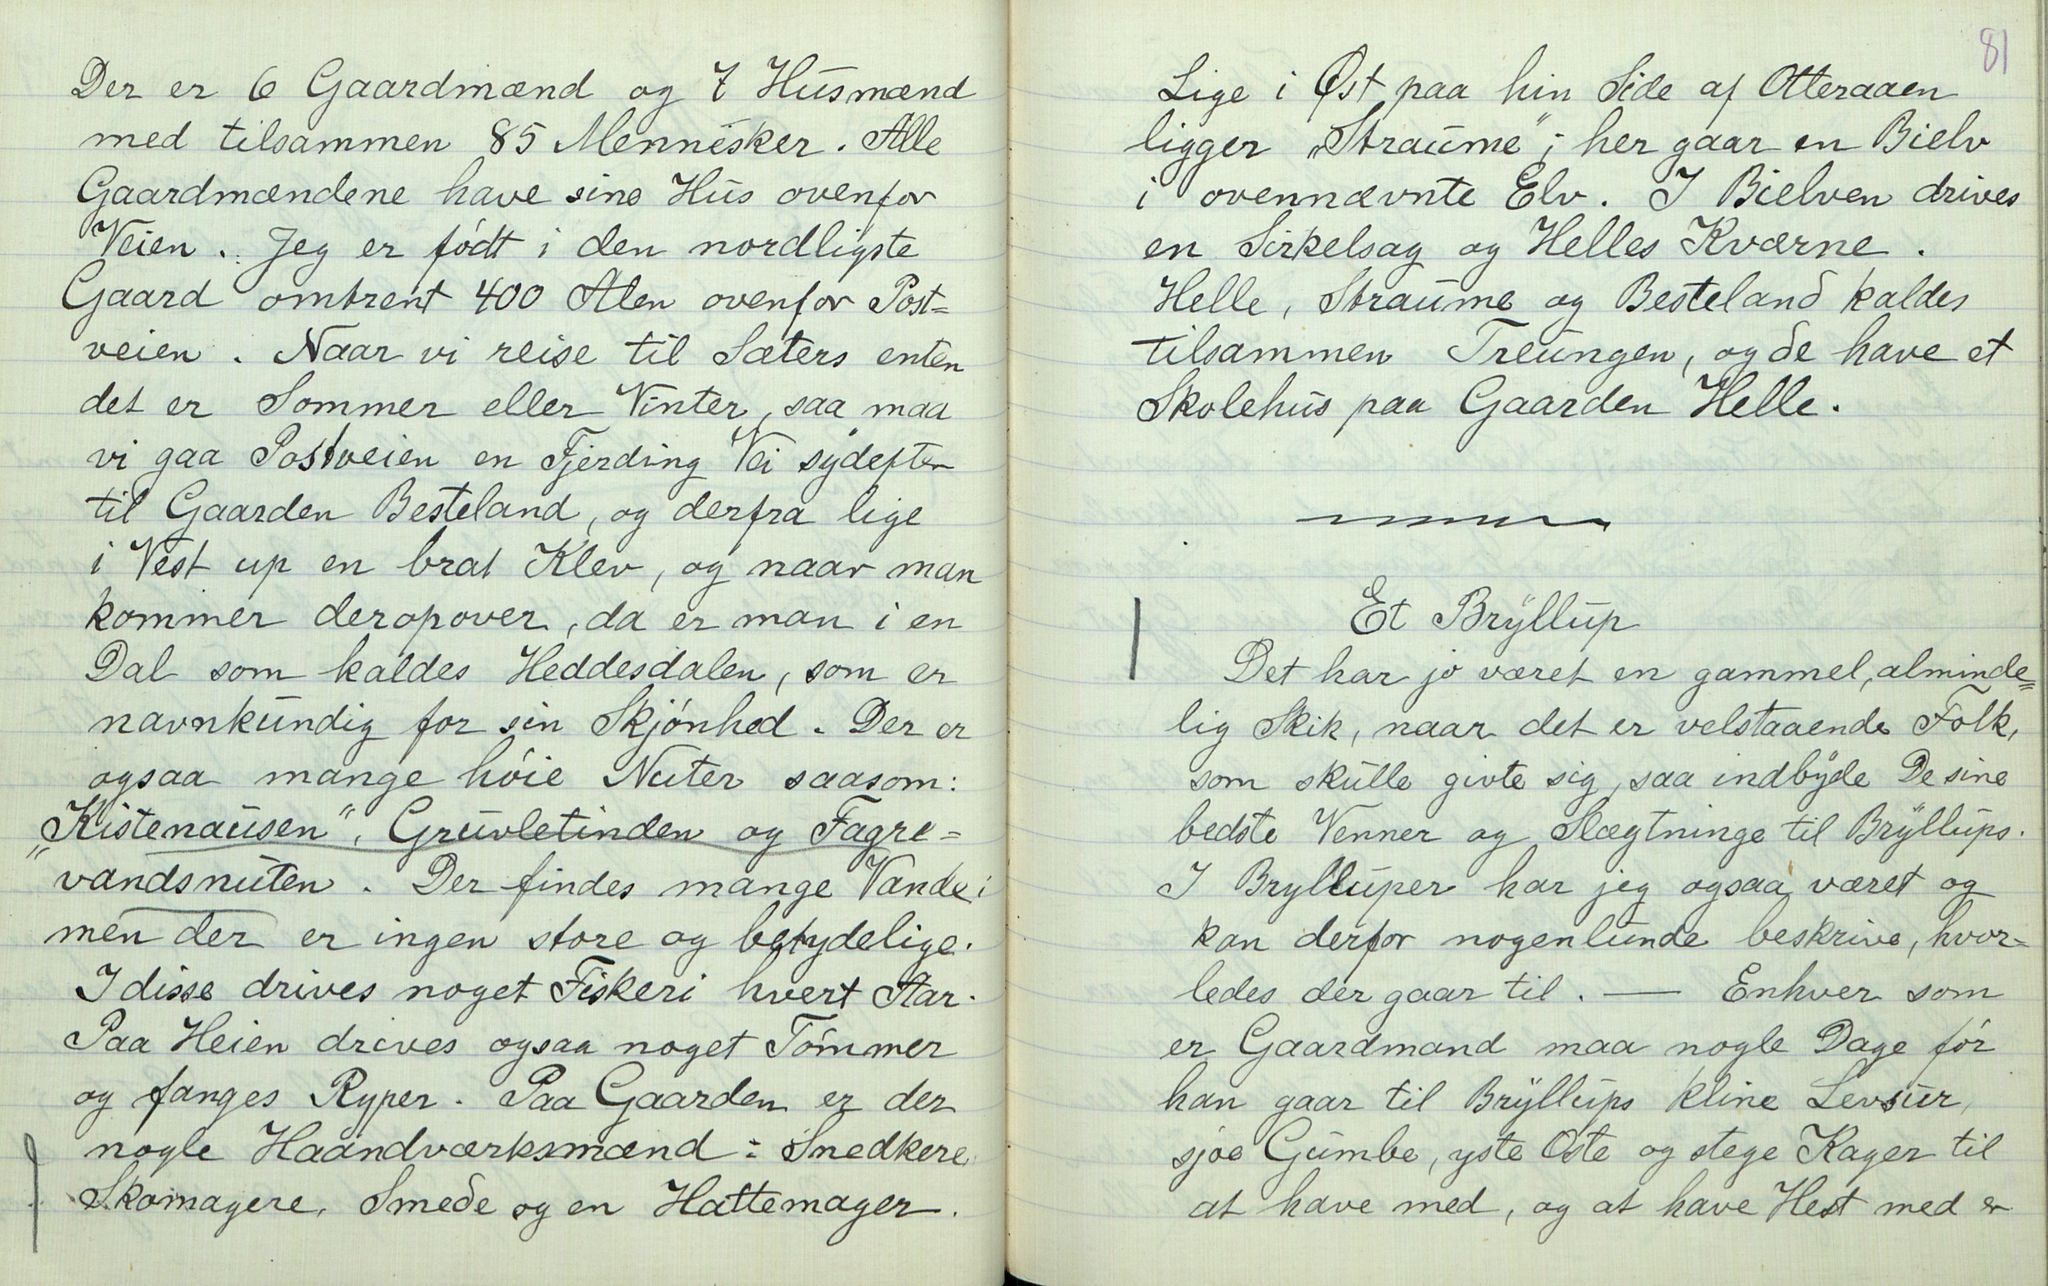 Der er 6 Gaardmænd og 7 Husmænd
med tilsammen 85 Mennesker. Alle
Gaardmændene have sine Hus ovenfor
Veien. Jeg er født i den nordligste
Gaard omtrent 400 Alen ovenfor Post=
veien. Naar vi reise til Sæters enten
det er Sommer eller Vinter, saa maa
vi gaa Postveien en Fjerding Vei sydefter
til Gaarden Besteland, og derfra lige
i Vest up en brat Klev, og naar man
kommer deropover, da er man i en
Dal som kaldes Heddesdalen, som er
navnkundig for sin Skjønhed. Der er
ogsaa mange høie Nuter saasom:
„Kistenausen", Gruvletinden og Fagre=
"vandsnuten. Der findes mange Vande;
men der er ingen store og betydelige.
I disse drives noget Fiskeri hvert Aar.
Paa Heien drives ogsaa noget Tømmer
og fanges Ryper. Paa Gaarden er der
nogle Haandværksmænd: Snedkere
Skomagere, Smede og en Hattemager.
81
Lige i Øst paa hin Side af Otteraaen
ligger „Straume"; her gaar en Bielv
i ovennævnte Elv. I Bielven drives
en Sirkelsag og Helles Kværne.
Helle, Straume og Besteland kaldes
tilsammen Treungen, og de have et
Skolehus paa Gaarden Helle.
Et Bryllup
Det har jo været en gammel, alminde=
lig Skik, naar det er velstaaende Folk,
som skulle givte sig, saa indbyde De sine
bedste Venner og Slægtninge til Bryllups.
I Brylluper har jeg ogsaa været og
kan derfor nogenlunde beskrive, hvor=
ledes der gaar til. — Enhver som
er Gaardmand maa nogle Dage før
han gaar til Bryllups kline Levsur,
sjoe Gumbe, yste Oste og stege Kager til
at have med, og at have Hest med er